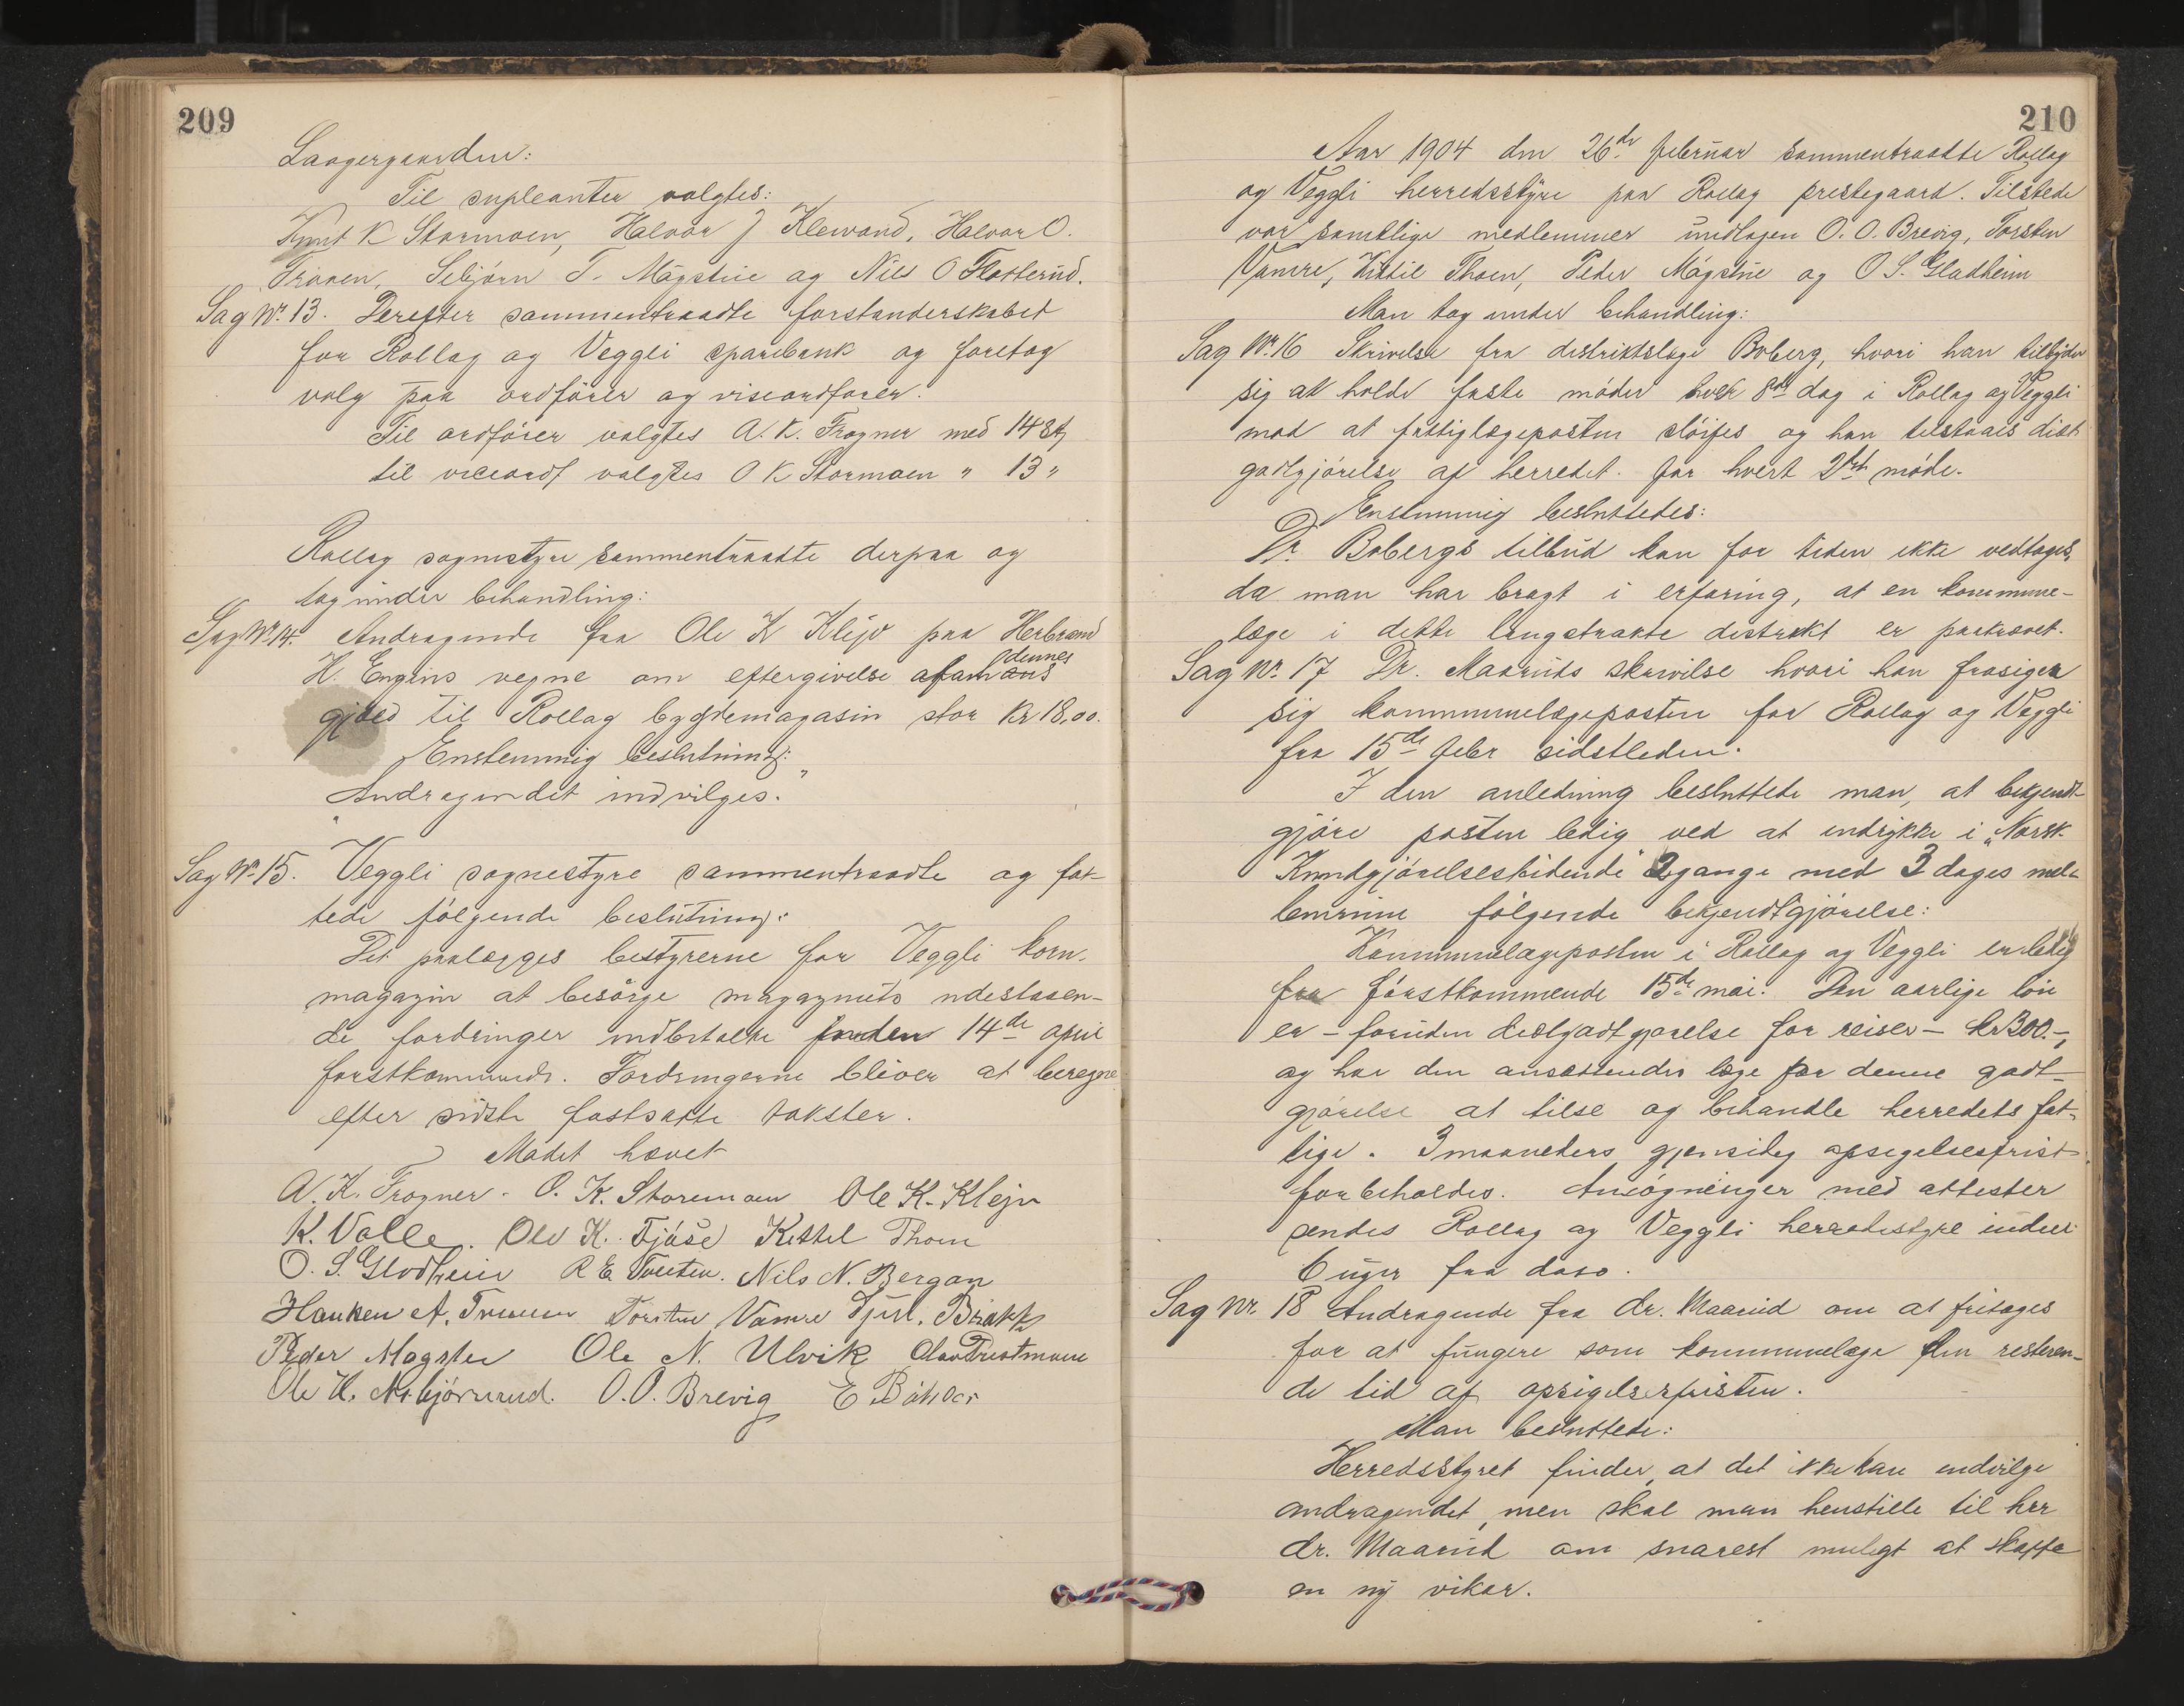 209
Laagergaarden:
Til supleanter valgtes:
Knut K Stormoen, Halvor J Klevand, Halvor O.
Traaen, Sebjörn T. Mögstüe og Nils O Flatterud.
Sag Nr. 13. Derefter sammentraadte forstanderskabet
for Rollag og Veggli sparebank og foretog
valg paa ordförer og viseordforer.
Til ordförer valgtes A. K. Frogner med 14 St,
til viceordf valgtes O K Stormoen " 13 "
Rollag sognestyre sammentraadte derpaa og
tog under behandling:
Sag Nr. 14. Andragende fra Ole K Klejv paa Herbrand
H. Engens vegne om eftergivelse af dennes
gjæld til Rollag bygdemagasin stor Kr 18,00.
Enstemmig beslutning:
„Andragendet indvilges."
Sag Nr. 15. Veggli sognestyre sammentraadte og fat-
tede fölgende beslutning:
Det paalægges bestyrerne for Veggli korn-
magazin at besörge magazinets udestaaen-
de fordringer indbetalte inden 14de april
forstkommende. Fordringerne bliver at beregne
efter sidste fastsatte takster.
Mödet hævet
A. K. Frogner. O. K. Storemoen Ole K. Klejv
K. Valle. Ole K. Fjöse Kittel Thoen
O. S. Gladheim R E Tveiten. Nils N. Bergan
Haaken A. Traaen Torsten Vamre Tjøl. Brakk
Peder Mogstue Ole N. Ulvik Olav Trostmoen
Ole H. Asbjörnrud. O. O. Brevig E Båhler
210
Aar 1904 den 26de februar sammentraadte Rollag
og Veggli herredsstyre paa Rollag prestegaard. Tilstede
var samtlige medlemmer undtagen O. O. Brevig, Torsten
Vamre, Kittil Thoen, Peder Mögstue og O S. Gladheim
Man tog under behandling:
Sag Nr. 16 Skrivelse fra distriktslæge Boberg, hvori han tilbyder
sig at holde faste möder hver 8de dag i Rollag og Veggli
mod at fattiglægeposten slöifes og han tilstaaes diæt
godtgjörelse af herredet for hvert 2det möde.
Enstemmig besluttedes:
Dr. Bobergs tilbud kan for tiden ikke vedtages,
da man har bragt i erfaring, at en kommune-
læge i dette langstrakte distrikt er paakrævet.
Sag Nr. 17 Dr. Maaruds skrivelse hvori han frasiger
sig kommunelægeposten for Rollag og Veggli
fra 15de febr sidstleden.
I den anledning besluttede man, at bekjendt-
gjöre posten ledig ved at indrykke i „Norsk
Kundgjörelsestidende" 2 gange med 3 dages mel-
lemrum fölgende bekjendtgjörelse:
Kommunelægeposten i Rollag og Veggli er ledig
fra förstkommende 15de mai. Den aarlige lön
er – foruden diætgodtgjørelse for reiser – kr 300.–,
og har den ansættendes læge for denne godt-
gjörelse at tilse og behandle herredets fat-
tige. 3 maaneders gjensidig opsigelsesfrist
forbeholdes. Ansögninger med attester
sendes Rollag og Veggli herredsstyre inden
6 uger fra dato.
Sag Nr. 18 Andragende fra dr. Maarud om at fritages
for at fungere som kommunelæge den resteren-
de tid af opsigelsesfristen.
Man besluttede:
Herredsstyret finder, at det ikke kan indvilge
andragendet, men skal man henstille til hrr
dr. Maarud om snarest muligt at skaffe
en ny vikar.